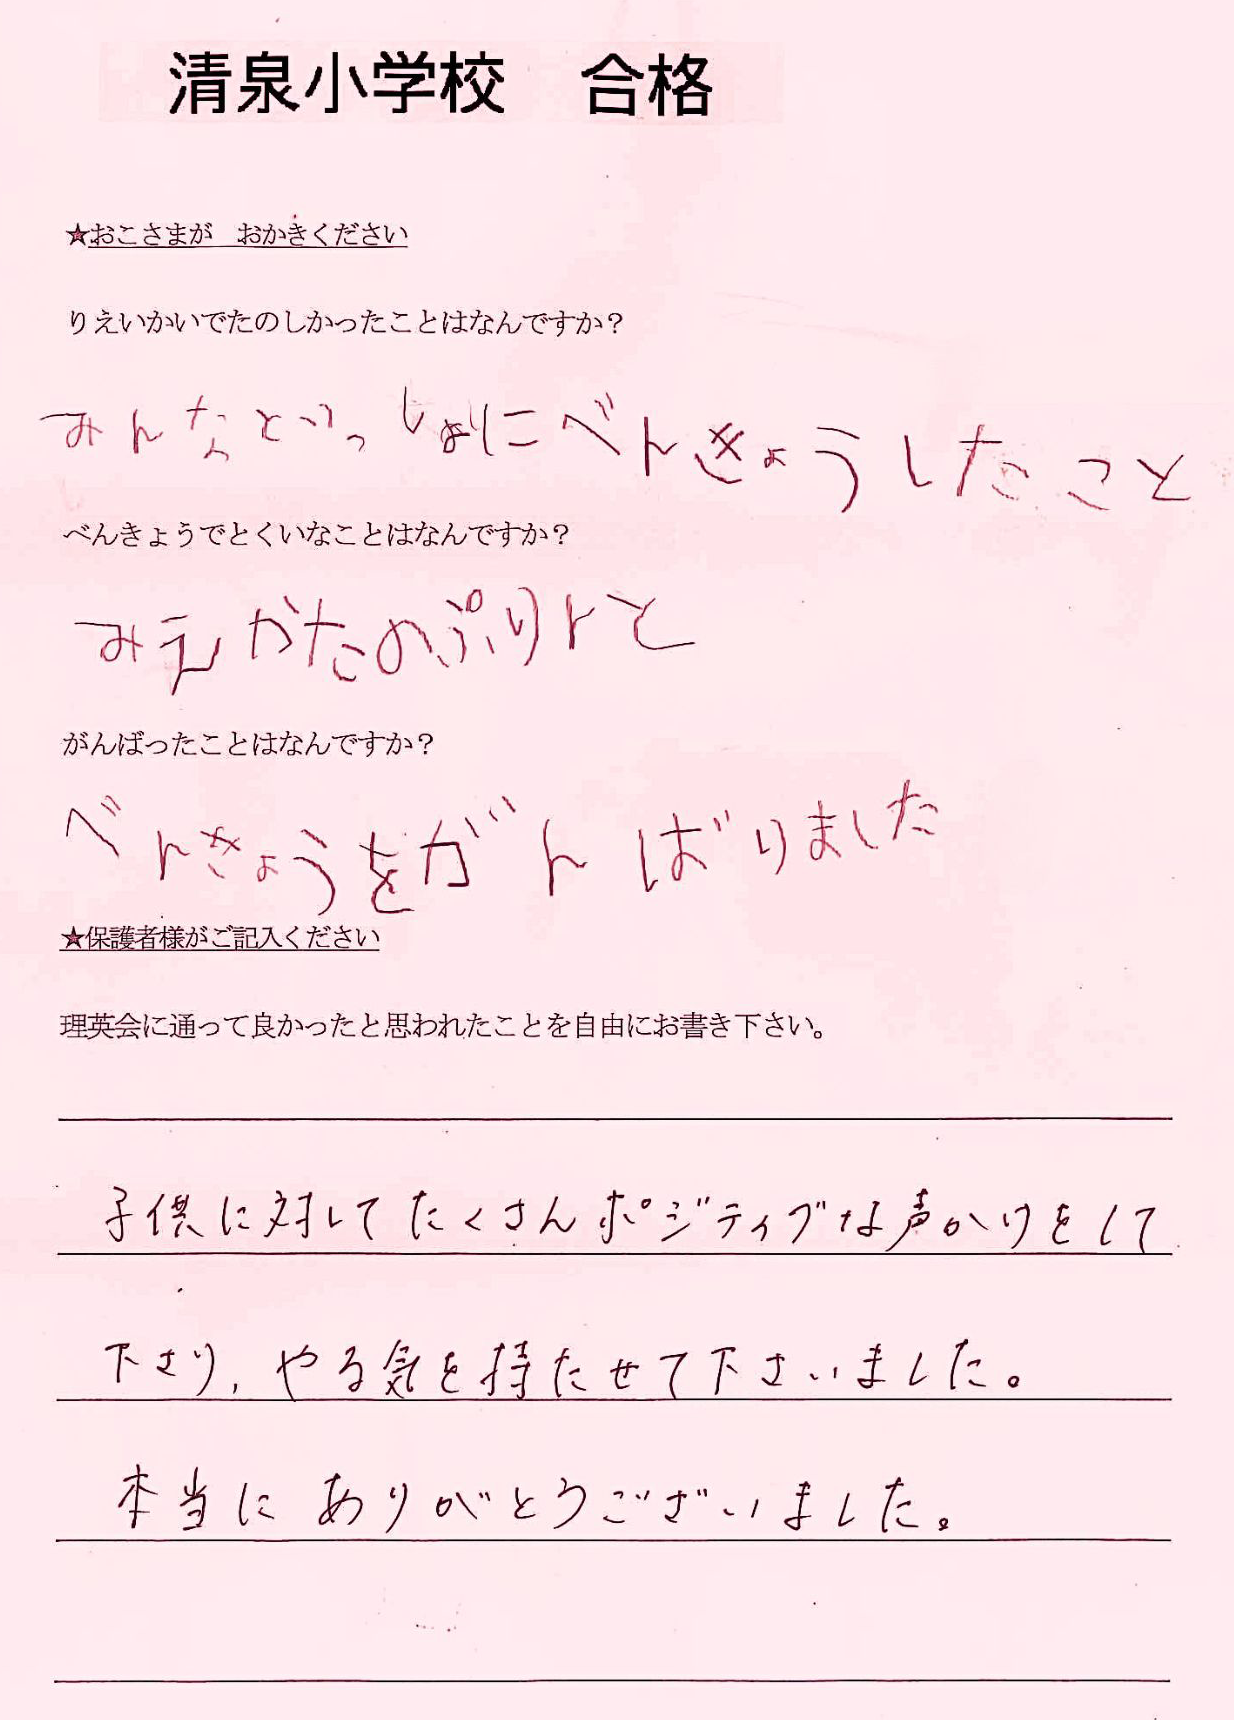 清泉小学校　合格
★おこさまが　おかきください
りえいかいでたのしかったことはなんですか？
みんなといっしょにべんきょうしたこと
べんきょうでとくいなことはなんですか？
みえかたのぷりんと
がんばったことはなんですか？
べんきょうをがんばりました
★保護者様がご記入ください
理英会に通って良かったと思われたことを自由にお書き下さい。
子供に対してたくさんポジティブな声かけをして
下さり、やる気を持たせて下さいました。
本当にありがとうございました。